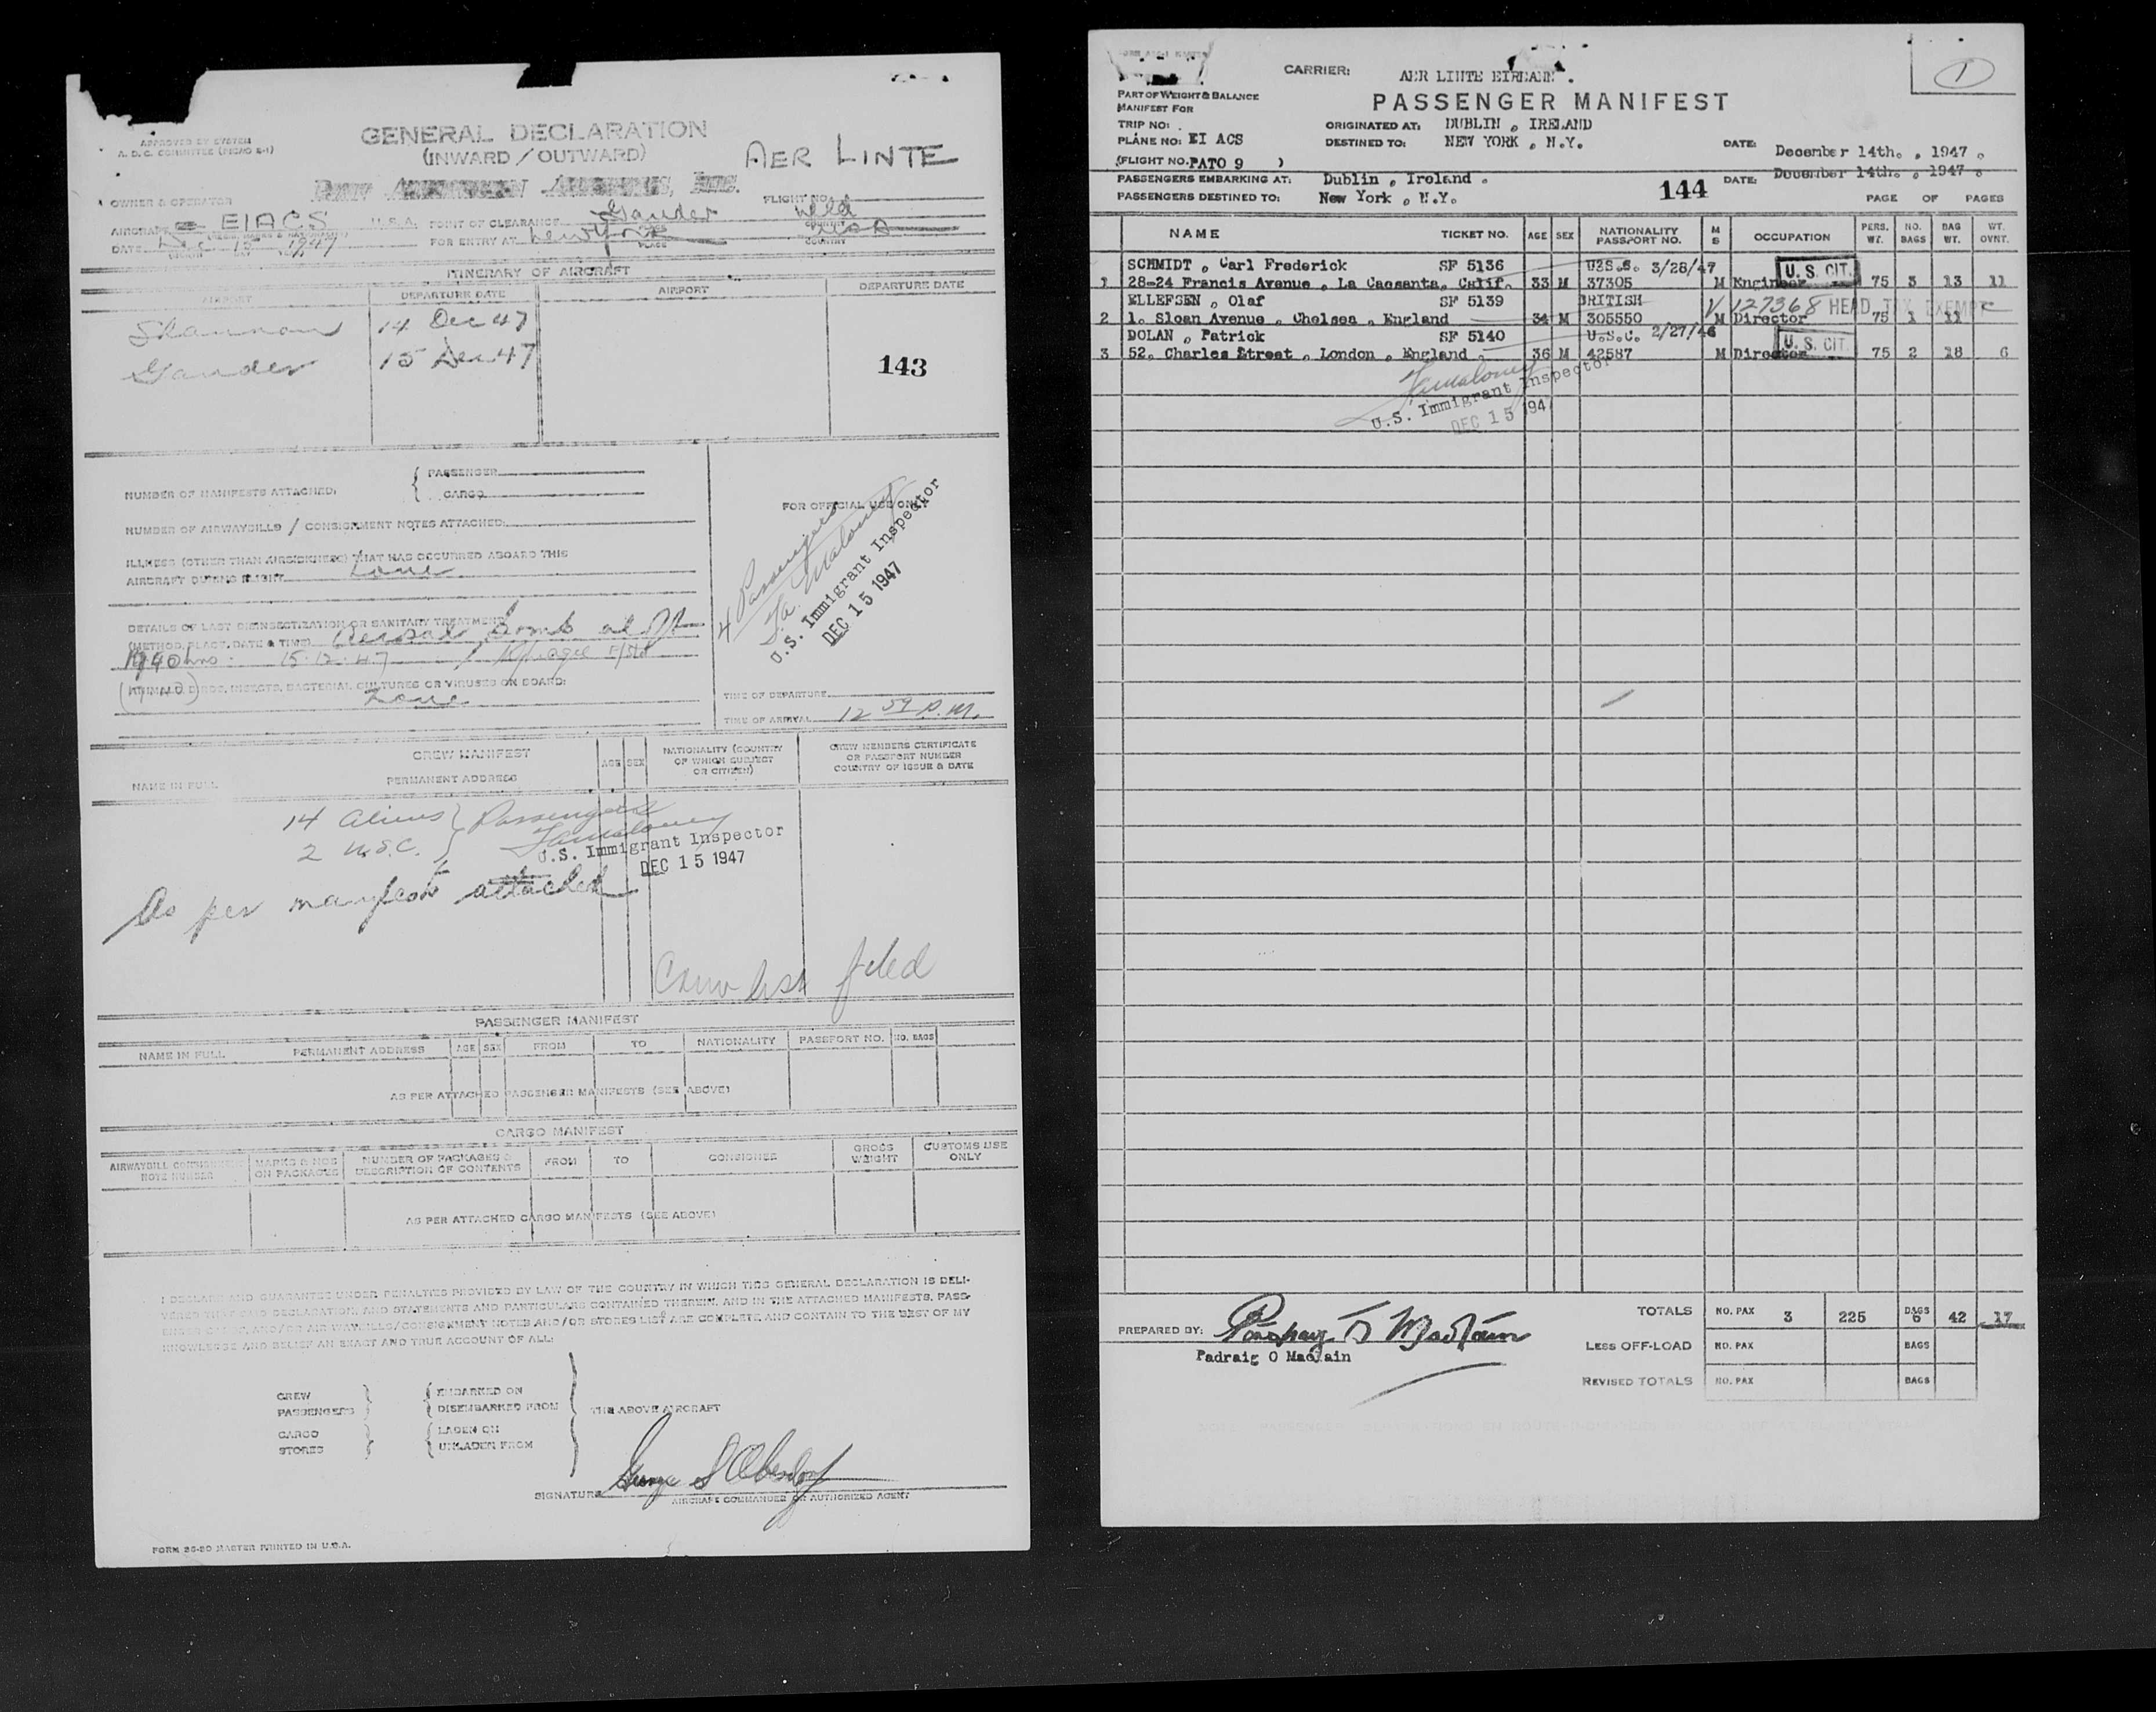 APPROVED BY SYSTEM
GENERAL DECLARATION
(INWARD / OUTWARD)
AER LINTE
OWNER & OPERATOR
FLIGHT NO.
AIRCRAFT EIACS U.S.A. POINT OF CLEARANCE Gander Nfld
DATE Dec 15 1947 FOR ENTRY AT New York USA
PLACE COUNTRY
ITINERARY OF AIRCRAFT
AIRPORT DEPARTURE DATE AIRPORT DEPARTURE DATE
Shannon 14 Dec 47
Gander 15 Dec 47
143
NUMBER OF MANIFESTS ATTACHED: { PASSENGER
CARGO
NUMBER OF AIRWAYBILLS / CONSIGNMENT NOTES ATTACHED:
ILLNESS (OTHER THAN AIRSICKNESS) THAT HAS OCCURRED ABOARD THIS
AIRCRAFT DURING FLIGHT
DETAILS OF LAST DISINSECTIZATION OR SANITARY TREATMENT
(METHOD, PLACE, DATE & TIME) Aerosol Bomb
15.12.47
ANIMALS, BIRDS, INSECTS, BACTERIAL CULTURES OR VIRUSES ON BOARD:
FOR OFFICIAL USE ONLY
4 Passengers
U.S. Immigrant Inspector
DEC 15 1947
TIME OF DEPARTURE
TIME OF ARRIVAL 12 59 P.M.
CREW MANIFEST
NAME IN FULL PERMANENT ADDRESS AGE SEX NATIONALITY (COUNTRY OF WHICH SUBJECT OR CITIZEN) CREW MEMBERS CERTIFICATE OR PASSPORT NUMBER COUNTRY OF ISSUE & DATE
14 aliens } Passengers
2 U.S.C.
U.S. Immigrant Inspector
DEC 15 1947
As per manifest attached
Crew list filed
PASSENGER MANIFEST
NAME IN FULL PERMANENT ADDRESS AGE SEX FROM TO NATIONALITY PASSPORT NO. NO. BAGS
AS PER ATTACHED PASSENGER MANIFESTS (SEE ABOVE)
CARGO MANIFEST
AIRWAYBILL CONSIGNMENT NOTE NUMBER MARKS & NOS ON PACKAGES NUMBER OF PACKAGES & DESCRIPTION OF CONTENTS FROM TO CONSIGNEE GROSS WEIGHT CUSTOMS USE ONLY
AS PER ATTACHED CARGO MANIFESTS (SEE ABOVE)
I DECLARE AND GUARANTEE UNDER PENALTIES PROVIDED BY LAW OF THE COUNTRY IN WHICH THIS GENERAL DECLARATION IS DELI-
VERED THAT SAID DECLARATION AND STATEMENTS AND PARTICULARS CONTAINED THEREIN, AND IN THE ATTACHED MANIFESTS, PASS-
AND/OR AIR WAYBILLS/CONSIGNMENT NOTES AND/OR STORES LIST ARE COMPLETE AND CONTAIN TO THE BEST OF MY
KNOWLEDGE AND BELIEF AN EXACT AND TRUE ACCOUNT OF ALL:
CREW } { EMBARKED ON
PASSENGERS DISEMBARKED FROM } THE ABOVE AIRCRAFT
CARGO } { LADEN ON
STORES UNLADEN FROM
SIGNATURE
AIRCRAFT COMMANDER OR AUTHORIZED AGENT
FORM 26-20 MASTER PRINTED IN U.S.A.
CARRIER: AER LINTE EIREANN.
1
PART OF WEIGHT & BALANCE
MANIFEST FOR
PASSENGER MANIFEST
TRIP NO: ORIGINATED AT: DUBLIN, IRELAND
PLANE NO: EI ACS DESTINED TO: NEW YORK, N.Y. DATE: December 14th., 1947.
(FLIGHT NO. PATO 9 )
PASSENGERS EMBARKING AT: Dublin, Ireland. DATE: December 14th., 1947.
PASSENGERS DESTINED TO: New York, N.Y. 144 PAGE OF PAGES
NAME TICKET NO. AGE SEX NATIONALITY PASSPORT NO. M S OCCUPATION PERS. WT. NO. BAGS BAG WT. WT. OVNT.
SCHMIDT, Carl Frederick SF 5136 U.S.S. 3/28/47 U. S. CIT.
1 28-24 Francis Avenue, La Caesanta, Calif. 33 M 37305 M Engineer 75 3 13 11
ELLEFSEN, Olaf SF 5139 BRITISH V 127368 HEAD TAX EXEMPT
2 1. Sloan Avenue, Chelsea, England 34 M 305550 M Director 75 1 11
DOLAN, Patrick SF 5140 U.S.C. 2/27/46 U. S. CIT.
3 52, Charles Street, London, England. 36 M 42587 M Director 75 2 18 6
U.S. Immigrant Inspector
DEC 15 1947
TOTALS NO. PAX 3 225 BAGS 6 42 17
PREPARED BY:
Padraig O Maolain
LESS OFF-LOAD NO. PAX BAGS
REVISED TOTALS NO. PAX BAGS